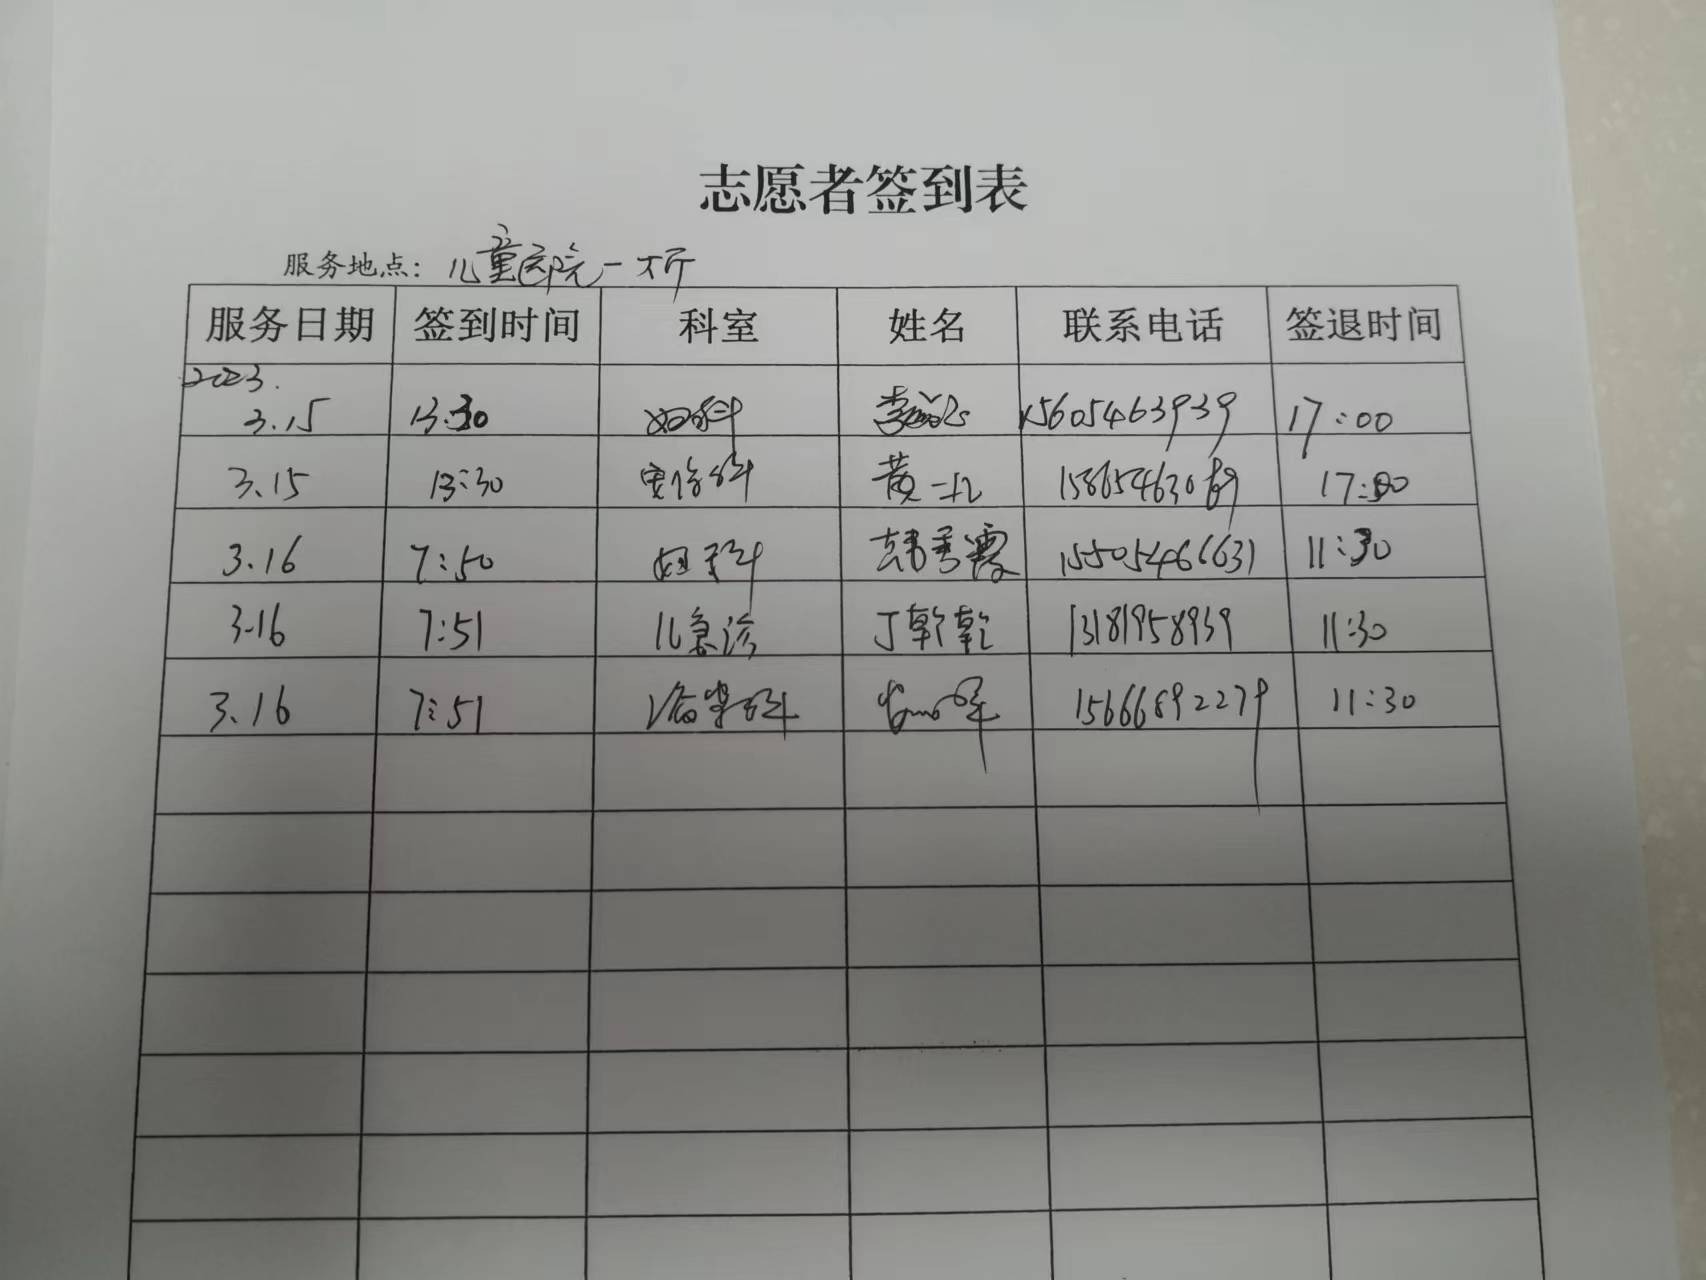 志愿者签到表
服务地点: 儿童医院一大厅
服务日期 签到时间 科室 姓名 联系电话 签退时间
2023.
3.15 13:30 妇科 李 15605463939 17:00
3.15 13:30 科 黄一 15865463089 17:00
3.16 7:50 科 韩秀霞 15505466631 11:30
3.16 7:51 儿急诊 丁乾乾 13181958939 11:30
3.16 7:51 科 15666892279 11:30